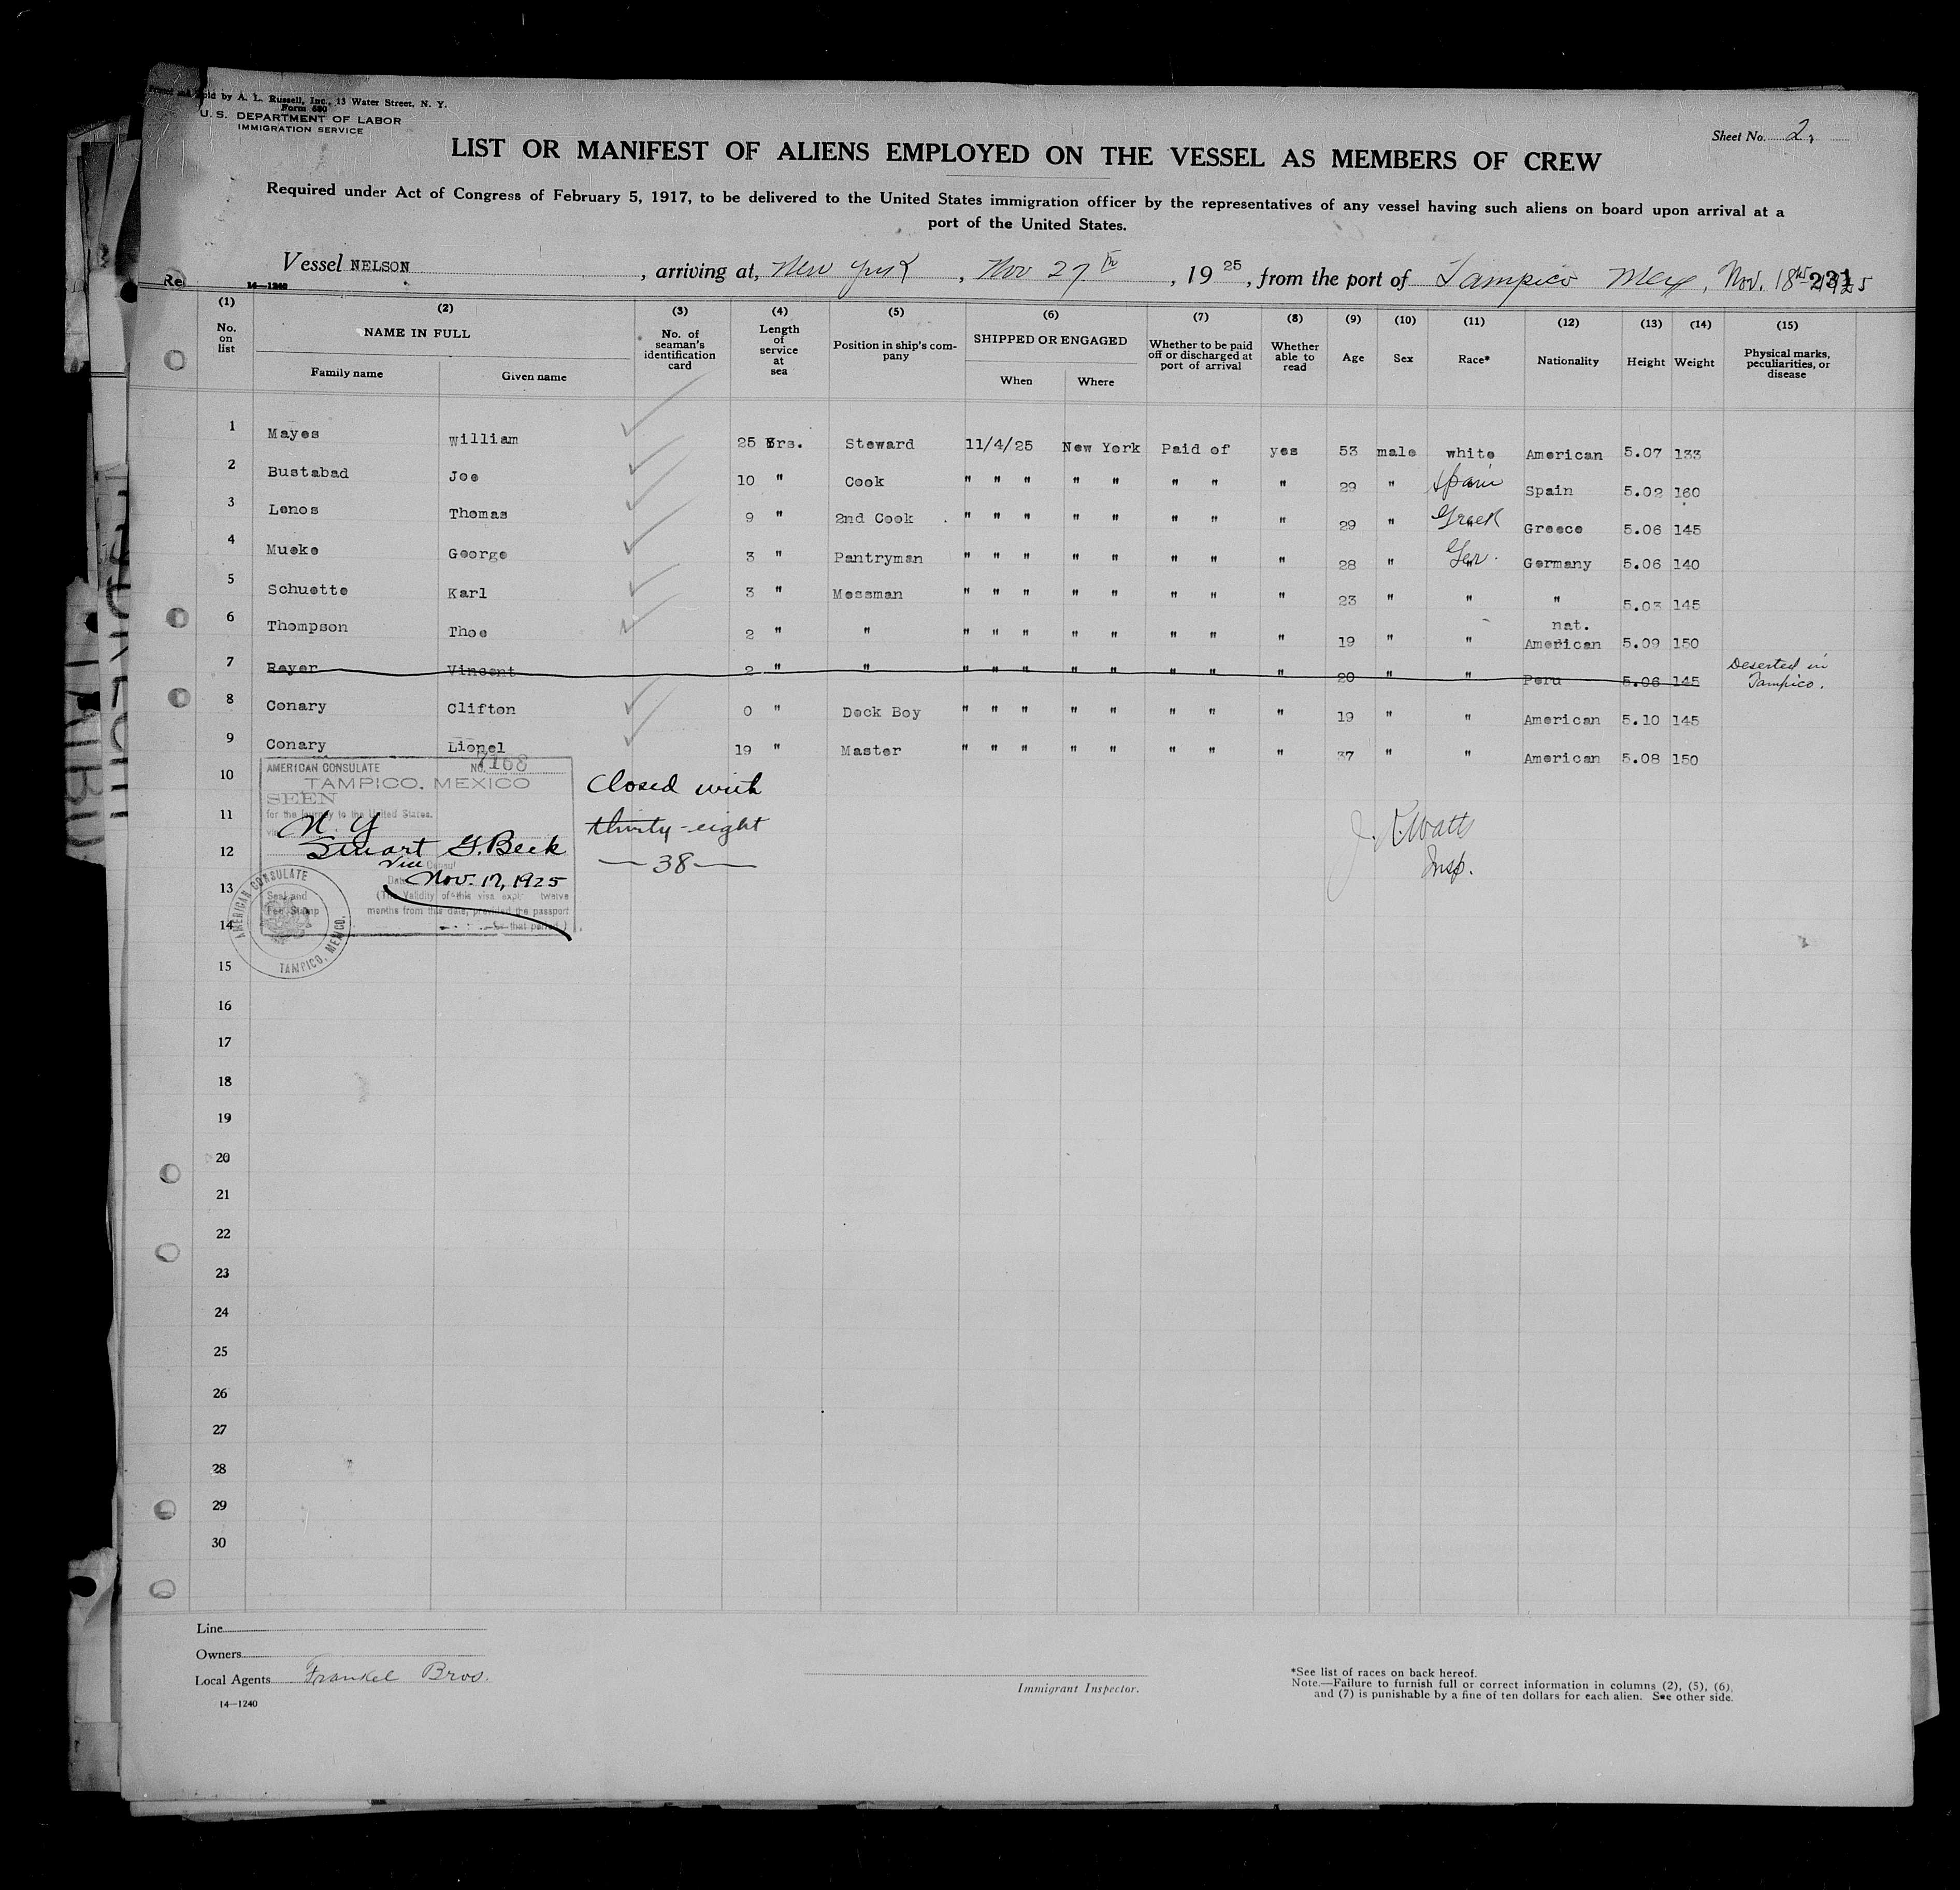 Printed and Sold by A. L. Russell, Inc., 13 Water Street, N. Y.
Form 680
U. S. DEPARTMENT OF LABOR
IMMIGRATION SERVICE
Sheet No. 2,
LIST OR MANIFEST OF ALIENS EMPLOYED ON THE VESSEL AS MEMBERS OF CREW
Required under Act of Congress of February 5, 1917, to be delivered to the United States immigration officer by the representatives of any vessel having such aliens on board upon arrival at a
port of the United States.
Vessel NELSON, arriving at, New York, Nov 27th, 1925, from the port of Tampico Mex, Nov. 18th 1925
231
Re
14—1240
(1) (2) (3) (4) (5) (6) (7) (8) (9) (10) (11) (12) (13) (14) (15)
No. on list
NAME IN FULL
Family name
Given name
No. of seaman's identification card
Length of service at sea
Position in ship's company
SHIPPED OR ENGAGED
When
Where
Whether to be paid off or discharged at port of arrival
Whether able to read
Age
Sex
Race*
Nationality
Height
Weight
Physical marks, peculiarities, or disease
1 Mayes William 25 Yrs. Steward 11/4/25 New York Paid of yes 53 male white American 5.07 133
2 Bustabad Joe 10 " Cook " " " " " " " " 29 " Spain Spain 5.02 160
3 Lenos Thomas 9 " 2nd Cook . " " " " " " " " 29 " Greek Greece 5.06 145
4 Mueke George 3 " Pantryman " " " " " " " " 28 " Ger. Germany 5.06 140
5 Schuette Karl 3 " Messman " " " " " " " " 23 " " " 5.03 145
6 Thompson Thoe 2 " " " " " " " " " " 19 " " nat. American 5.09 150
7 Rayer Vincent 2 " " " " " " " " " " 20 " " Peru 5.06 145 Deserted in Tampico.
8 Conary Clifton 0 " Deck Boy " " " " " " " " 19 " " American 5.10 145
9 Conary Lionel 19 " Master " " " " " " " " 37 " " American 5.08 150
10
11
12
13
14
15
16
17
18
19
20
21
22
23
24
25
26
27
28
29
30
AMERICAN CONSULATE No. 7168
TAMPICO, MEXICO
SEEN
for the journey to the United States.
N. Y
Stuart G. Beck
Vice Consul
Date Nov. 17, 1925
(The Validity of this visa twelve
months from this date, provided the passport
that period.)
Seal and
Fee Stamp
AMERICAN CONSULATE
TAMPICO, MEXICO.
Closed with
thirty-eight
—38—
J. Watts
Insp.
Line
Owners
Local Agents Frankel Bros.
14—1240
Immigrant Inspector.
*See list of races on back hereof.
Note.—Failure to furnish full or correct information in columns (2), (5), (6),
and (7) is punishable by a fine of ten dollars for each alien. See other side.